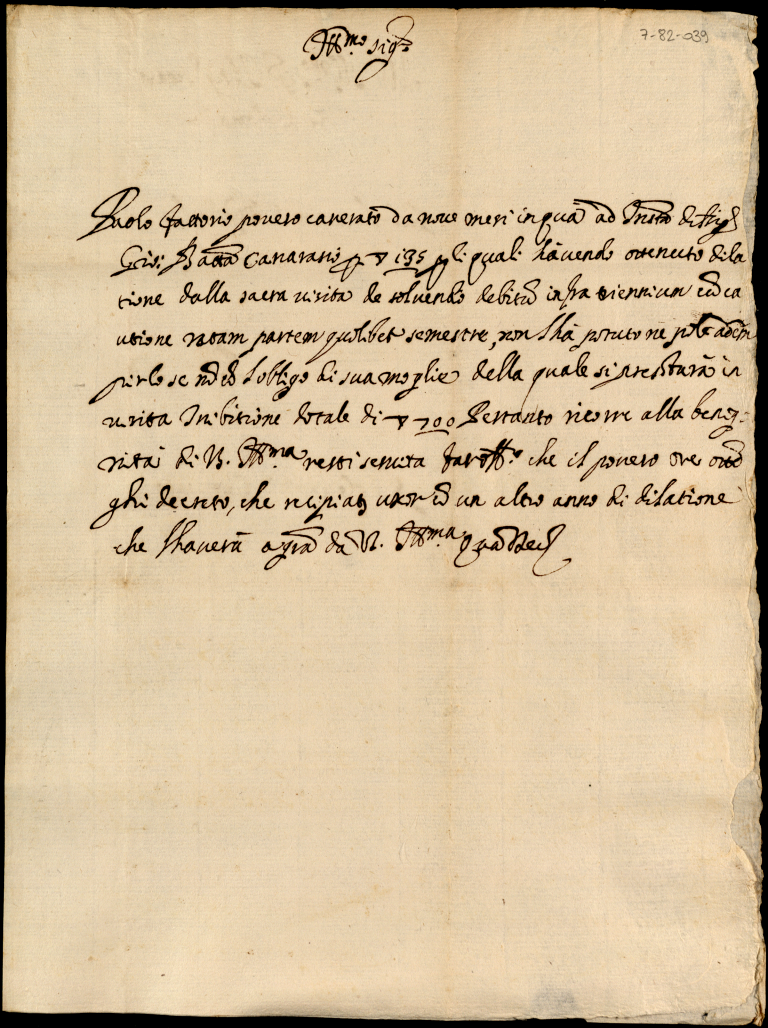 7-82-039
Ill.mo sig.re
Paolo fattorio povero carcerato da nove mesi in qua ad Insta di
Gio: Batta Canavario p ▽ 135 p li quali havendo ottenuto dila
tione dalla sacra visita de solvendo debitū infra triennium cū ca
utione ratam partem quolibet semestre, non lhà potuto ne può
pirlo se nō cō l'obligo di sua moglie della quale si presta in
visita Inibitione dotale di ▽ 700 Pertanto ricorre alla benig-
nità di V. Ill.ma resti servita che il povero ore
ghi decreto, che recipiat uxor cō un altro anno di dilatione
che lhaverà a gra da V. Ill.ma Quā Deus